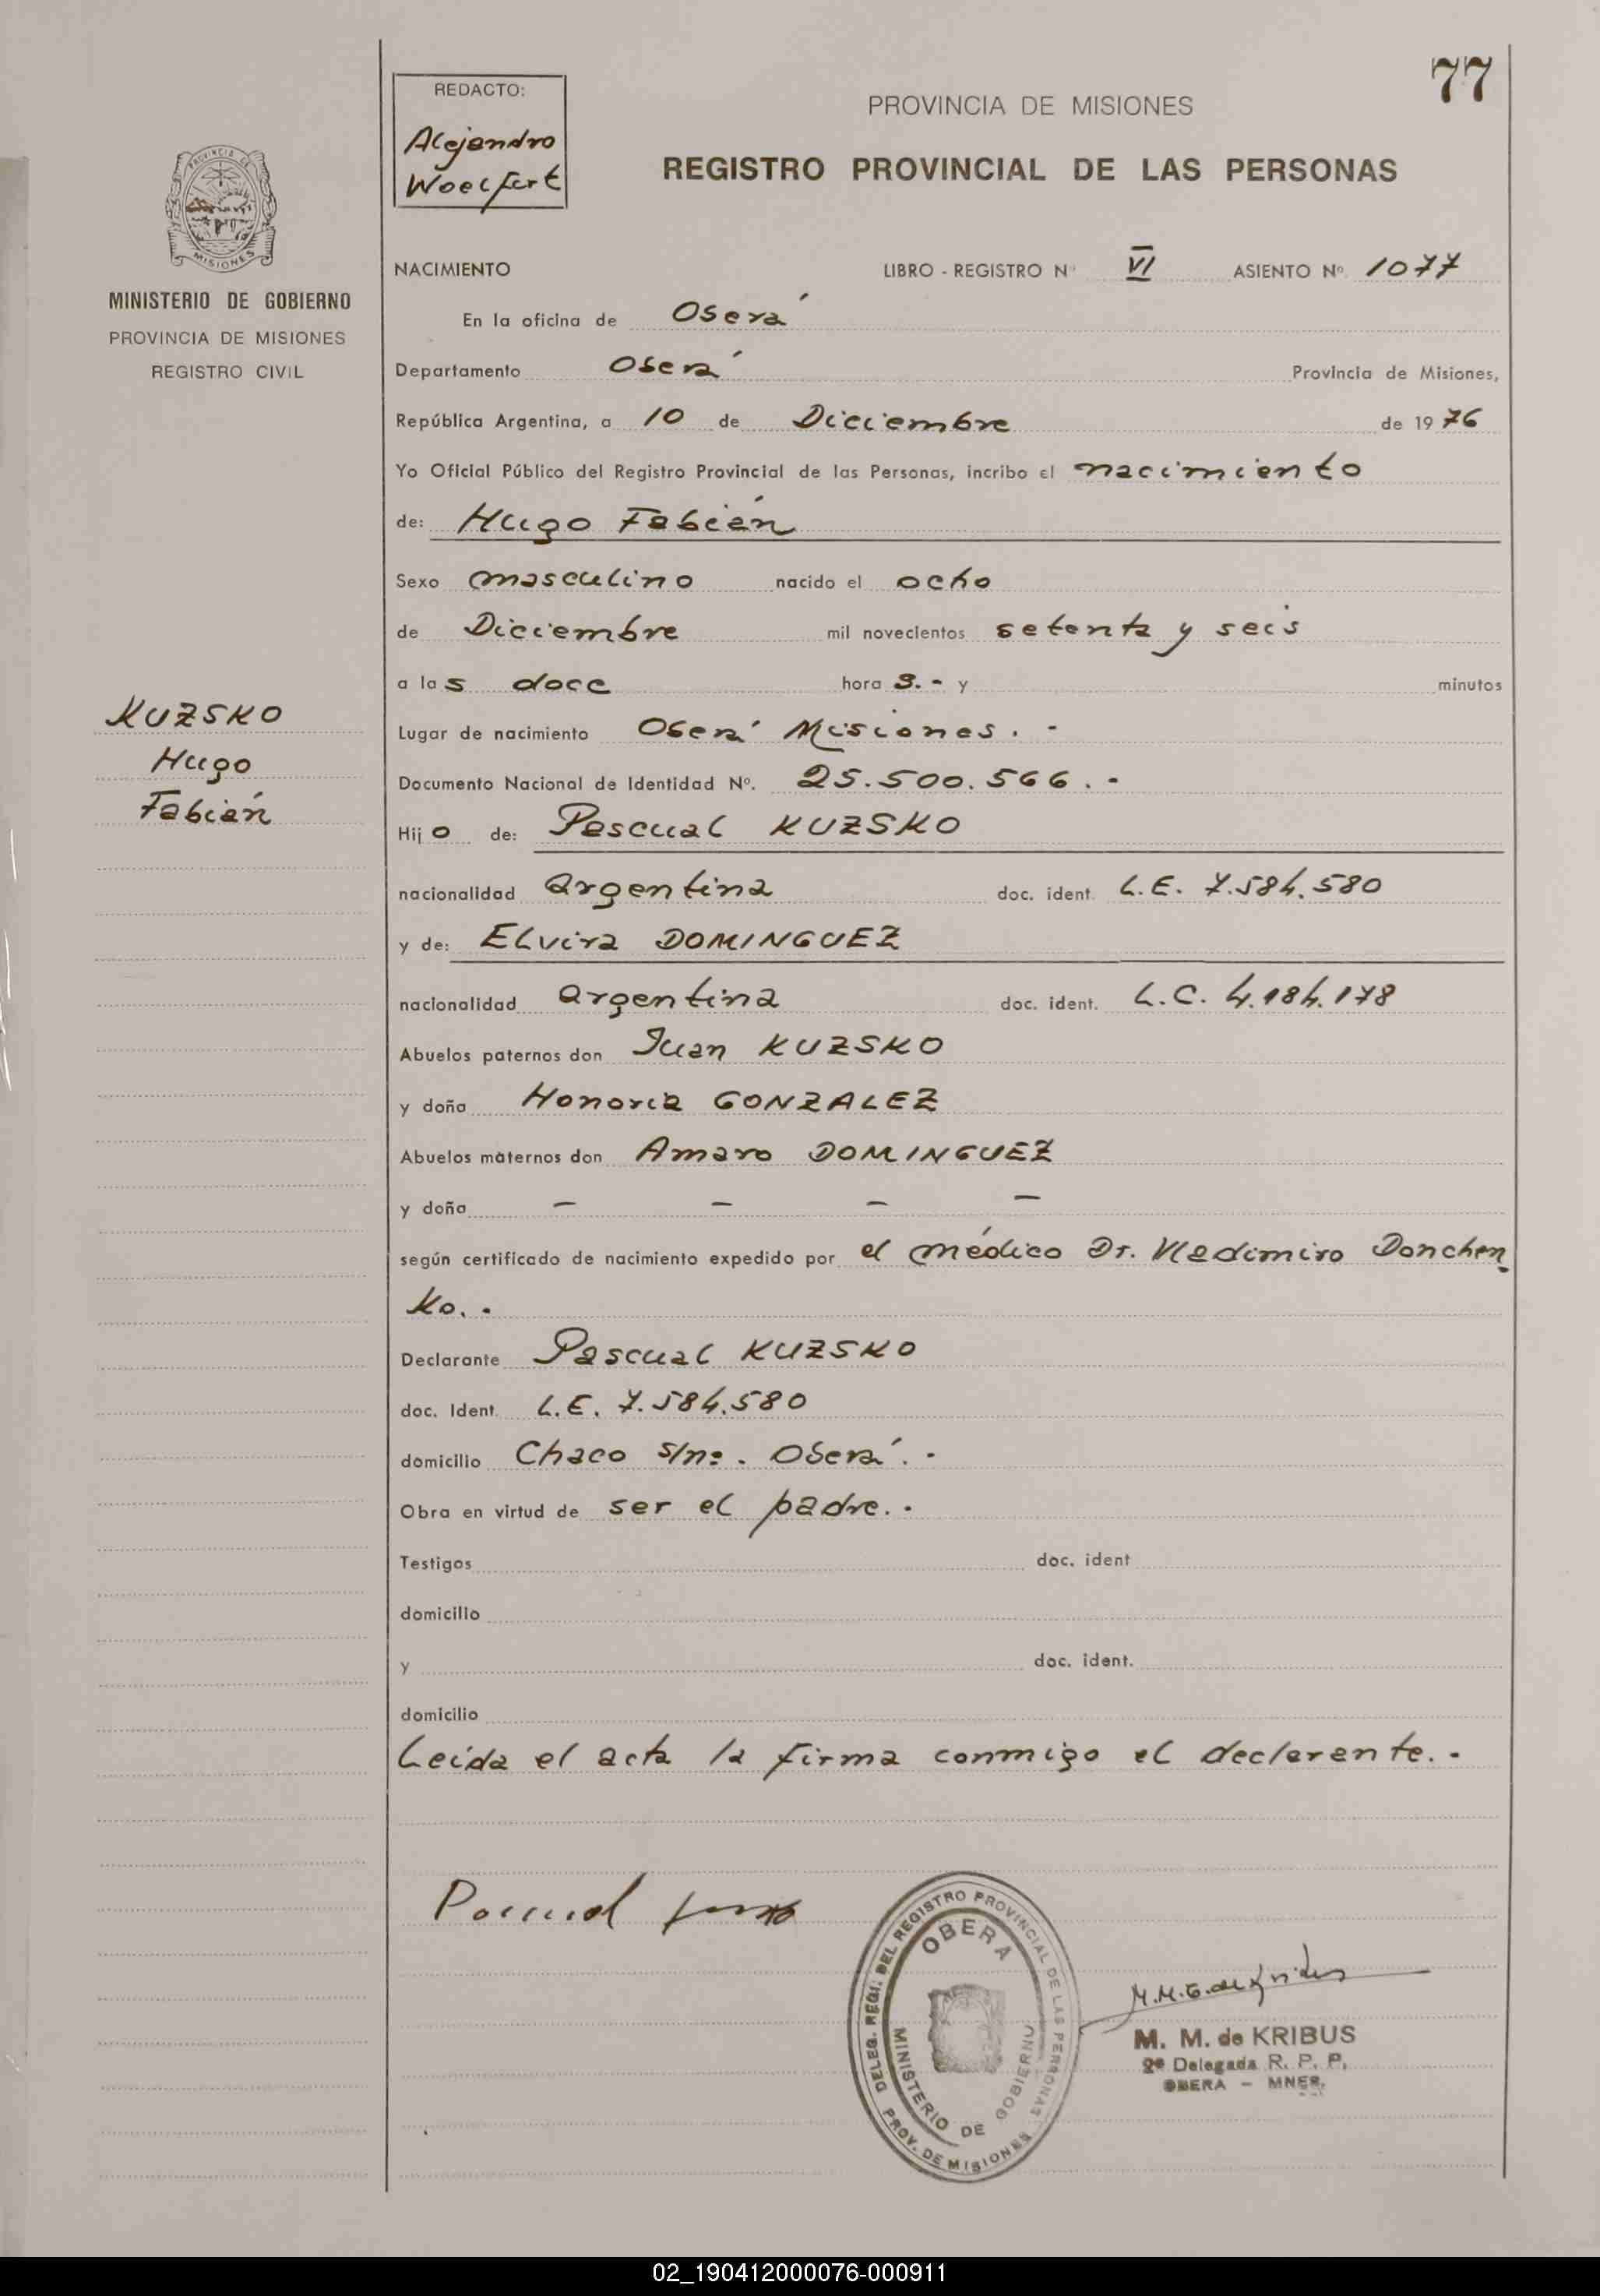 77
REDACTO:
Alejandro
Woelfert
PROVINCIA DE MISIONES
REGISTRO PROVINCIAL DE LAS PERSONAS
MINISTERIO DE GOBIERNO
PROVINCIA DE MISIONES
REGISTRO CIVIL
NACIMIENTO LIBRO - REGISTRO Nº VI ASIENTO Nº 1077
En la oficina de Oberá
Departamento Oberá Provincia de Misiones,
República Argentina, a 10 de Diciembre de 1976
Yo Oficial Público del Registro Provincial de las Personas, incribo el nacimiento
de: Hugo Fabián
Sexo masculino nacido el ocho
de Diciembre mil novecientos setenta y seis
a las doce hora s.- y minutos
KUZSKO
Hugo
Fabián
Lugar de nacimiento Oberá Misiones.-
Documento Nacional de Identidad Nº. 25.500.566.-
Hijo de: Pascual KUZSKO
nacionalidad argentina doc. ident. L.E. 7.584.580
y de: Elvira DOMINGUEZ
nacionalidad argentina doc. ident. L.C. 4.184.178
Abuelos paternos don Juan KUZSKO
y doña Honoria GONZALEZ
Abuelos maternos don Amaro DOMINGUEZ
y doña — — — —
según certificado de nacimiento expedido por el médico Dr. Vladimiro Donchen
ko.-
Declarante Pascual KUZSKO
doc. Ident. L.E. 7.584.580
domicilio Chaco s/nº. Oberá.-
Obra en virtud de ser el padre.-
Testigos doc. ident
domicilio
y doc. ident.
domicilio
Leída el acta la firma conmigo el declarante.-
Pascual
DELEG. REGI. DEL REGISTRO PROVINCIAL DE LAS PERSONAS
OBERA
MINISTERIO DE GOBIERNO
PROV. DE MISIONES
M. M. de KRIBUS
2ª Delegada R. P. P.
OBERA - MNES.
02_190412000076-000911